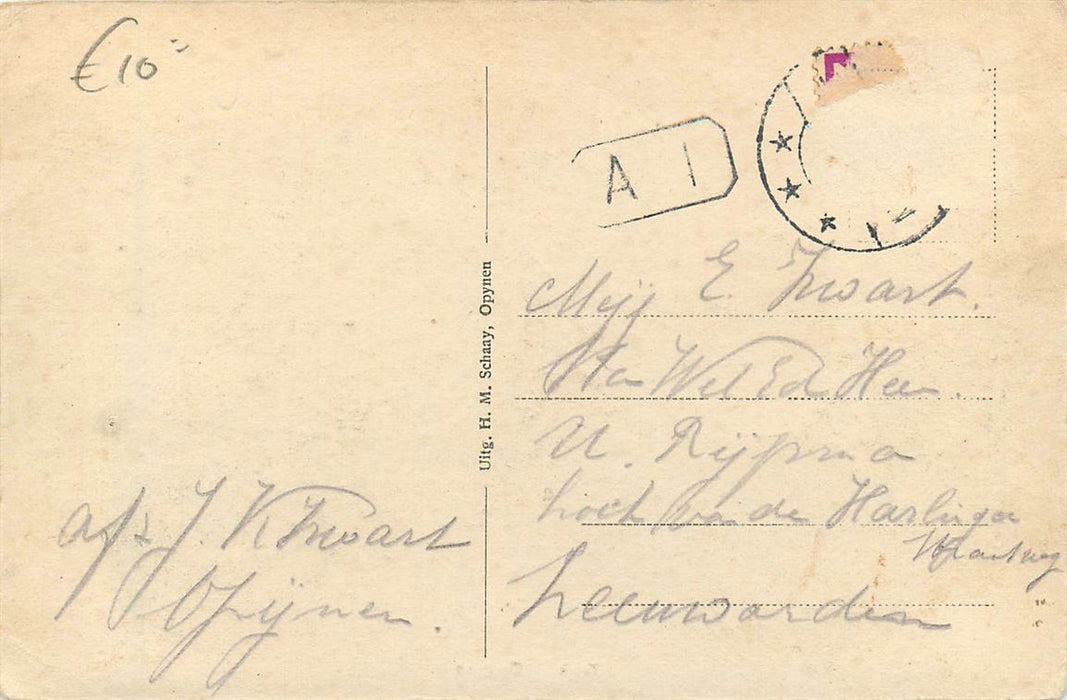 €10=
A 1
Uitg. H. M. Schaay, Opynen
Mejj E. Zwart.
WelEd Heer.
U. Rijpma
hoek van de Harlinger
Straatweg
Leeuwarden
afz J. K Zwart
Opijnen.